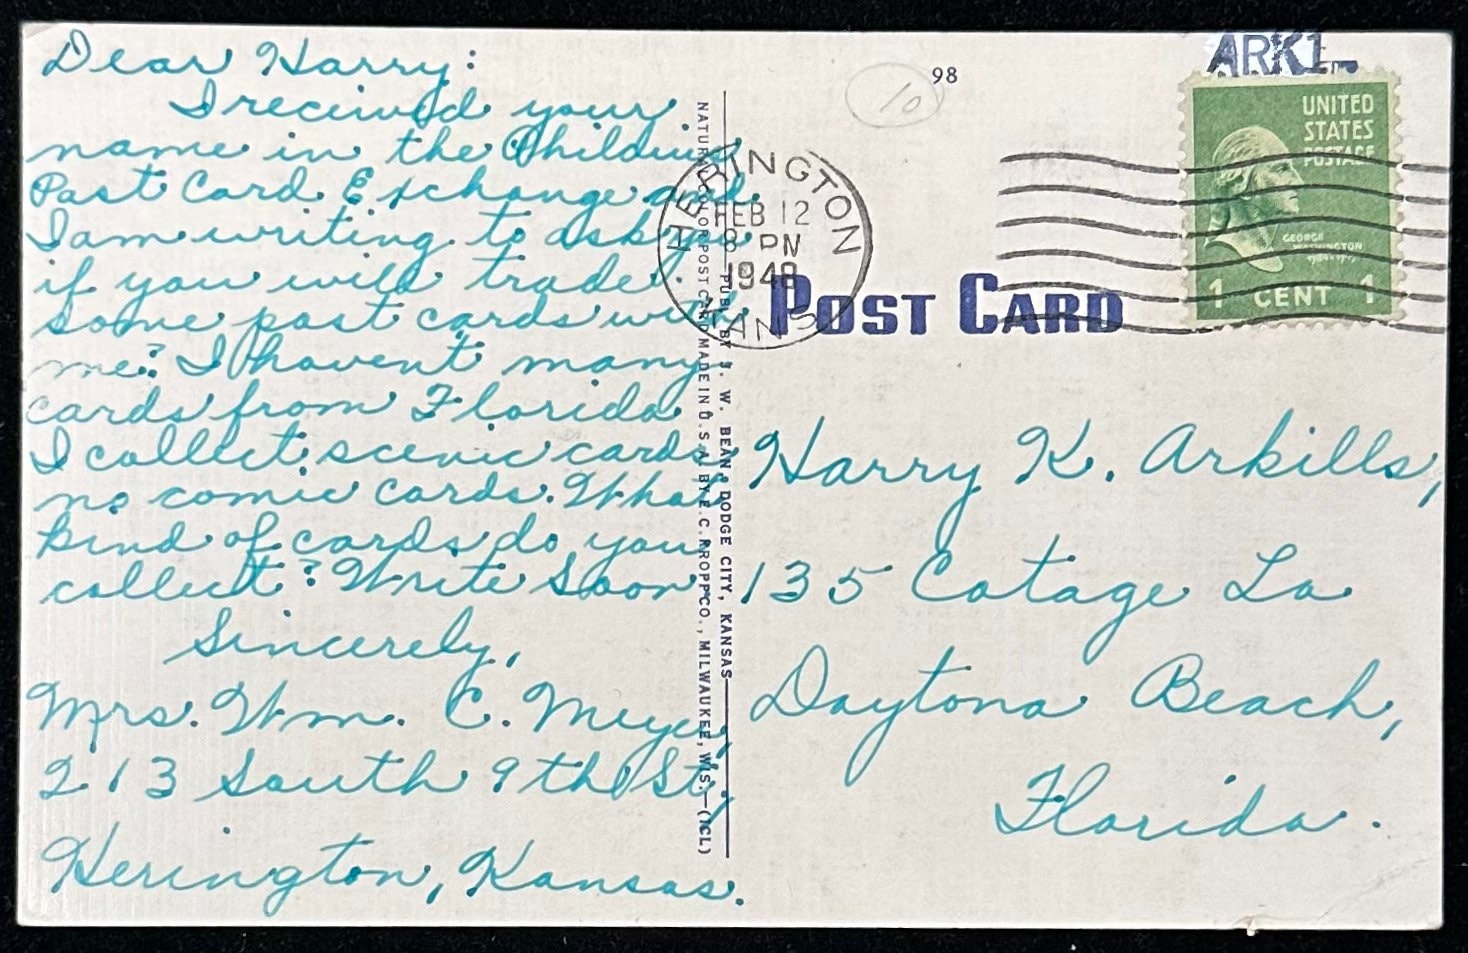 Dear Harry:
I received your
name in the Childrens
Post Card Exchange and
I am writing to ask you
if you will trade
some post cards with
me? I havent many
cards from Florida
I collect scenic cards
no comic cards. What
kind of cards do you
collect? Write Soon
Sincerely,
Mrs. Wm. C. Meyer,
213 South 9th St,
Herington, Kansas.
NATURAL COLOR POST CARD MADE IN U.S.A. BY E. C. KROPP CO., MILWAUKEE, WIS.—(ICL)
PUB. BY J. W. BEAN, DODGE CITY, KANSAS
10
98
ARKL
HERINGTON
FEB 12
8 PM
1948
KANS
UNITED
STATES
POSTAGE
GEORGE
WASHINGTON
1 CENT 1
POST CARD
Harry K. Arkills,
135 Cotage La
Daytona Beach,
Florida.